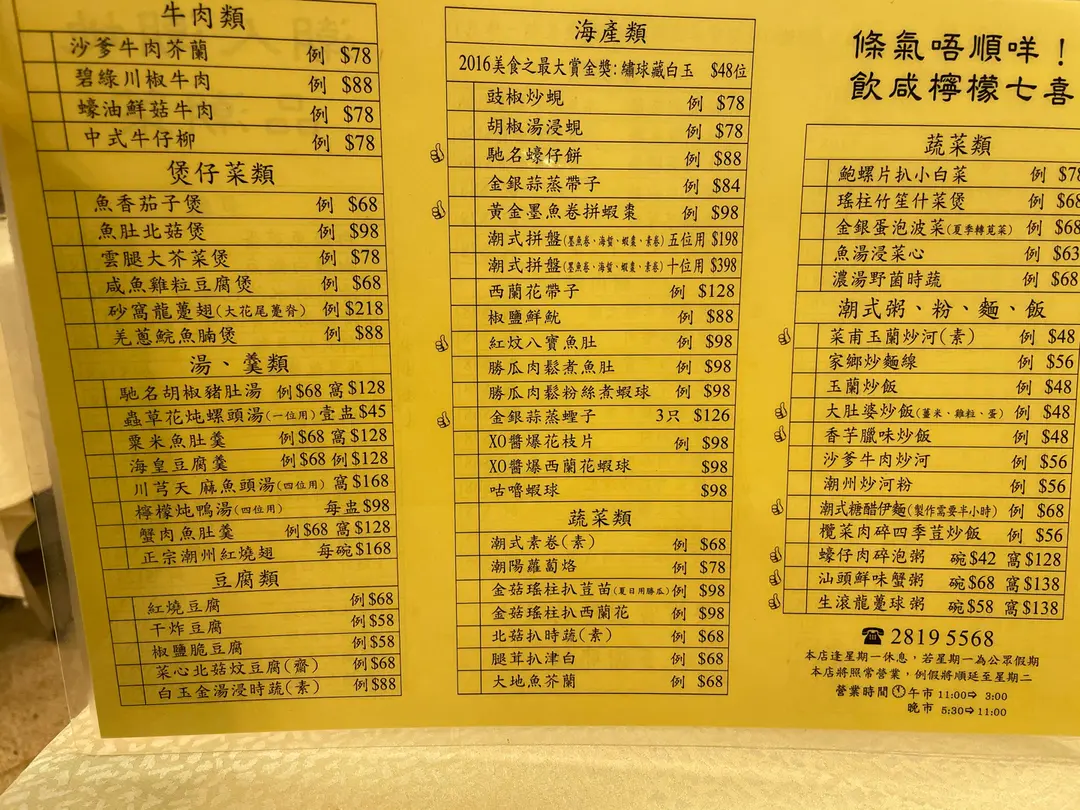 牛肉類
沙爹牛肉芥蘭 例 $78
碧綠川椒牛肉 例 $88
蠔油鮮菇牛肉 例 $78
中式牛仔柳 例 $78
煲仔菜類
魚香茄子煲 例 $68
魚肚北菇煲 例 $98
雲腿大芥菜煲 例 $78
咸魚雞粒豆腐煲 例 $68
砂窩龍躉翅(大花尾躉脊) 例 $218
羌蔥鯇魚腩煲 例 $88
湯、羹類
馳名胡椒豬肚湯 例$68 窩$128
蟲草花炖螺頭湯(一位用) 壹盅$45
粟米魚肚羹 例$68 窩$128
海皇豆腐羹 例$68 例$128
川芎天麻魚頭湯(四位用) 窩$168
檸檬炖鴨湯(四位用) 每盅$98
蟹肉魚肚羹 例$68 窩$128
正宗潮州紅燒翅 每碗$168
豆腐類
紅燒豆腐 例$68
干炸豆腐 例$58
椒鹽脆豆腐 例$58
菜心北菇炆豆腐(齋) 例$68
白玉金湯浸時蔬(素) 例$88
海產類
2016美食之最大賞金獎:繡球藏白玉 $48位
豉椒炒蜆 例 $78
胡椒湯浸蜆 例 $78
馳名蠔仔餅 例 $88
金銀蒜蒸帶子 例 $84
黃金墨魚卷拼蝦棗 例 $98
潮式拼盤(墨魚卷、海蜇、蝦棗、素卷) 五位用 $198
潮式拼盤(墨魚卷、海蜇、蝦棗、素卷) 十位用 $398
西蘭花帶子 例 $128
椒鹽鮮魷 例 $88
紅炆八寶魚肚 例 $98
勝瓜肉鬆煮魚肚 例 $98
勝瓜肉鬆粉絲煮蝦球 例 $98
金銀蒜蒸蟶子 3只 $126
XO醬爆花枝片 例 $98
XO醬爆西蘭花蝦球 $98
咕嚕蝦球 $98
蔬菜類
潮式素卷(素) 例 $68
潮陽蘿蔔烙 例 $78
金菇瑤柱扒荳苗(夏日用勝瓜) 例 $98
金菇瑤柱扒西蘭花 例 $98
北菇扒時蔬(素) 例 $68
腿茸扒津白 例 $68
大地魚芥蘭 例 $68
條氣唔順咩！
飲咸檸檬七喜
蔬菜類
鮑螺片扒小白菜 例 $78
瑤柱竹笙什菜煲 例 $68
金銀蛋泡波菜(夏季轉莧菜) 例 $68
魚湯浸菜心 例 $63
濃湯野菌時蔬 例 $68
潮式粥、粉、麵、飯
菜甫玉蘭炒河(素) 例 $48
家鄉炒麵線 例 $56
玉蘭炒飯 例 $48
大肚婆炒飯(薑米、雞粒、蛋) 例 $48
香芋臘味炒飯 例 $48
沙爹牛肉炒河 例 $56
潮州炒河粉 例 $56
潮式糖醋伊麵(製作需要半小時) 例 $68
欖菜肉碎四季荳炒飯 例 $56
蠔仔肉碎泡粥 碗$42 窩$128
汕頭鮮味蟹粥 碗$68 窩$138
生滾龍躉球粥 碗$58 窩$138
☎ 2819 5568
本店逢星期一休息，若星期一為公眾假期
本店將照常營業，例假將順延至星期二
營業時間 午市 11:00⇨ 3:00
晚市 5:30⇨11:00